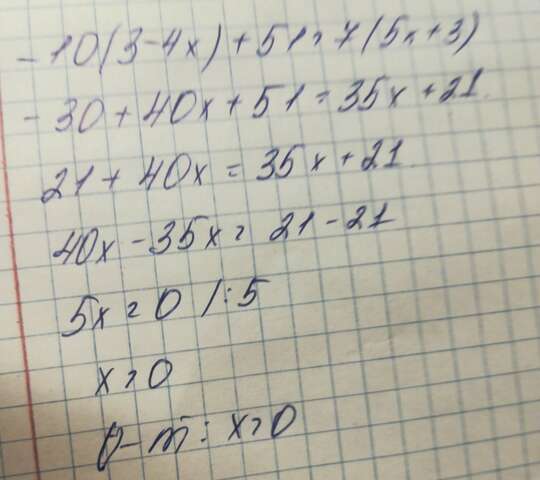 -10(3-4x)+51=7(5x+3)
-30+40x+51=35x+21
21+40x=35x+21
40x-35x=21-21
5x=0 /:5
x=0
О-т: x=0